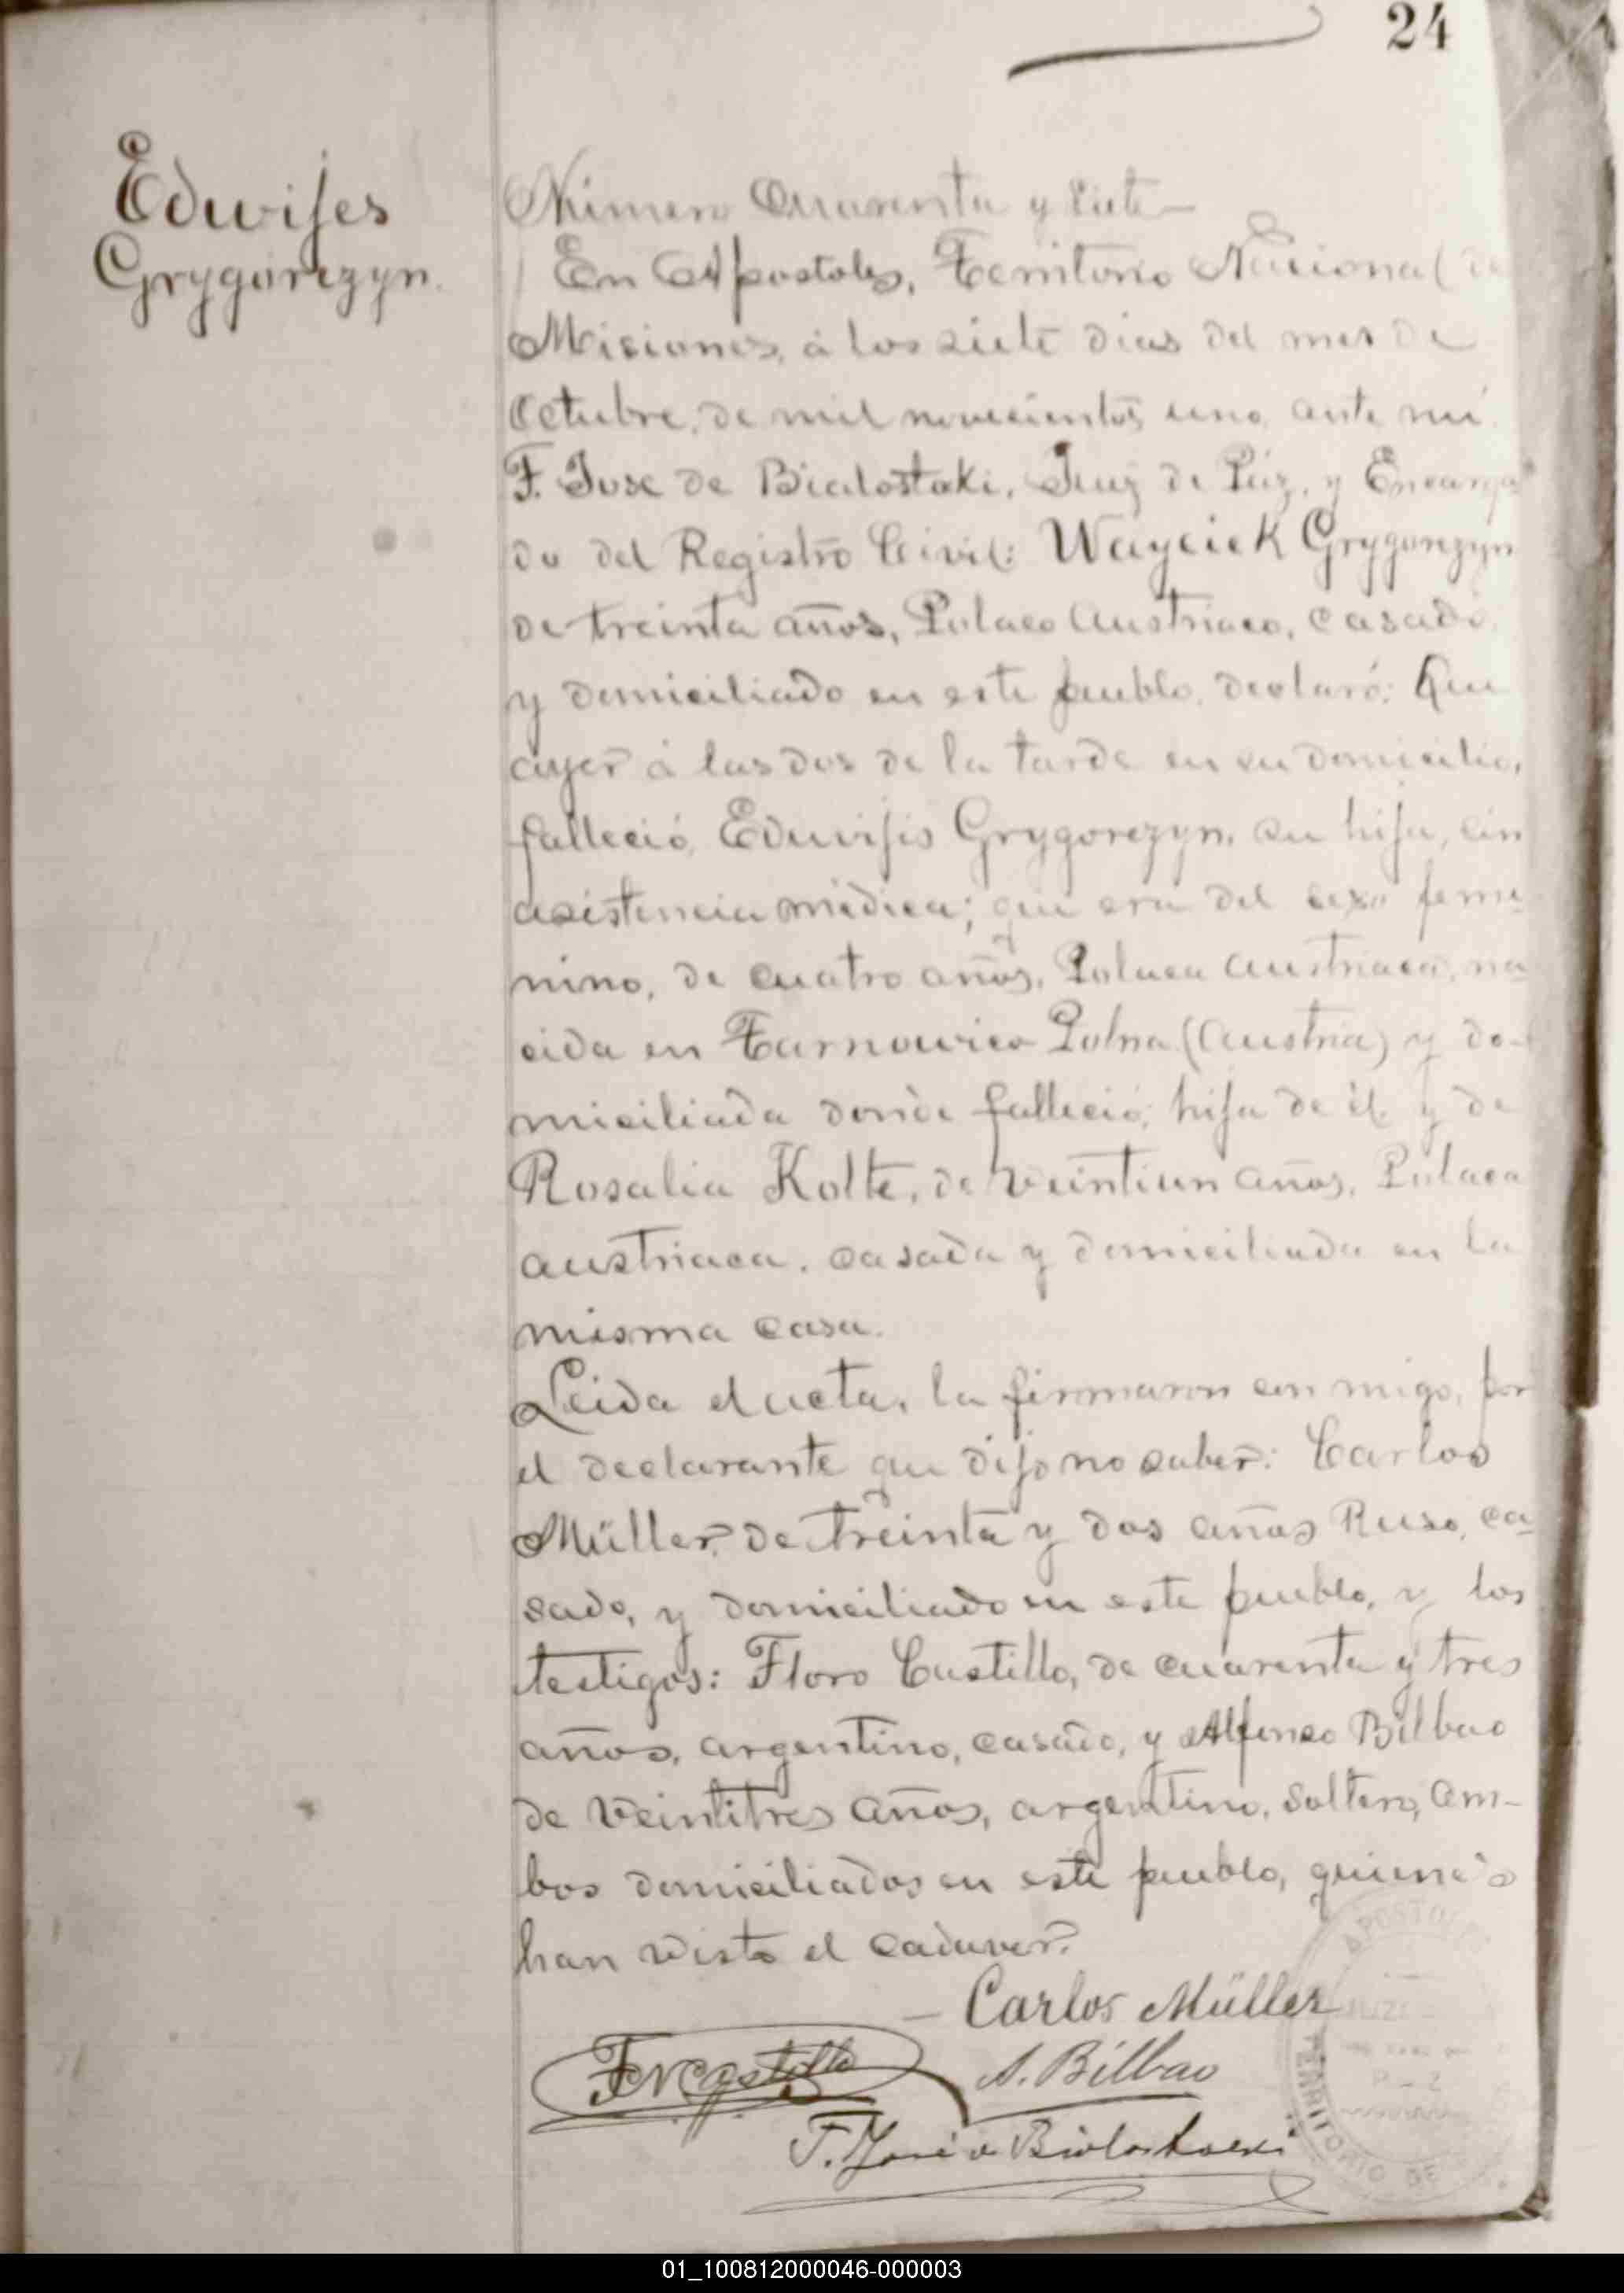 24
Eduvijes
Grygorezyn.
Número Cuarenta y siete
En Apostoles, Territorio Nacional de
Misiones, á los siete dias del mes de
Octubre, de mil novecientos uno, ante mi
F. Jose de Bialostaki, Juez de Páz, y Encarga
do del Registro Civil: Wayciek Grygorezyn
de treinta años, Polaco Austriaco, casado
y domiciliado en este pueblo, declaró: Que
ayer á las dos de la tarde en su domicilio,
falleció, Eduvijis Grygorezyn, su hija, sin
asistencia médica; que era del sexo feme
nino, de cuatro años, Polaca Austriaca, na
cida en Tarnowica Polna (Austria) y do-
miciliada donde falleció; hija de él y de
Rosalia Kolte, de veintiun años, Polaca
austriaca, casada y domiciliada en la
misma casa.
Leida el acta, la firmaron con migo, por
el declarante que dijo no saber: Carlos
Müller, de treinta y dos años Ruso, ca
sado, y domiciliado en este pueblo, y los
testigos: Floro Castillo, de cuarenta y tres
años, argentino, casado, y Alfonso Bilbao
de veintitres años, argentino, soltero, am-
bos domiciliados en este pueblo, quienes
han visto el cadaver.
Carlos Müller
A. Bilbao
F. José de Bialostaki
APOSTO
TERRITORIO DE
01_100812000046-000003